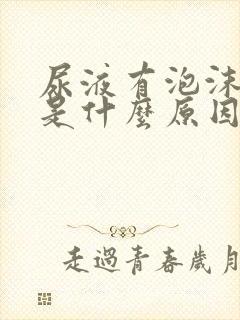 尿液有泡沫
是什麼原因
走過青春歲月